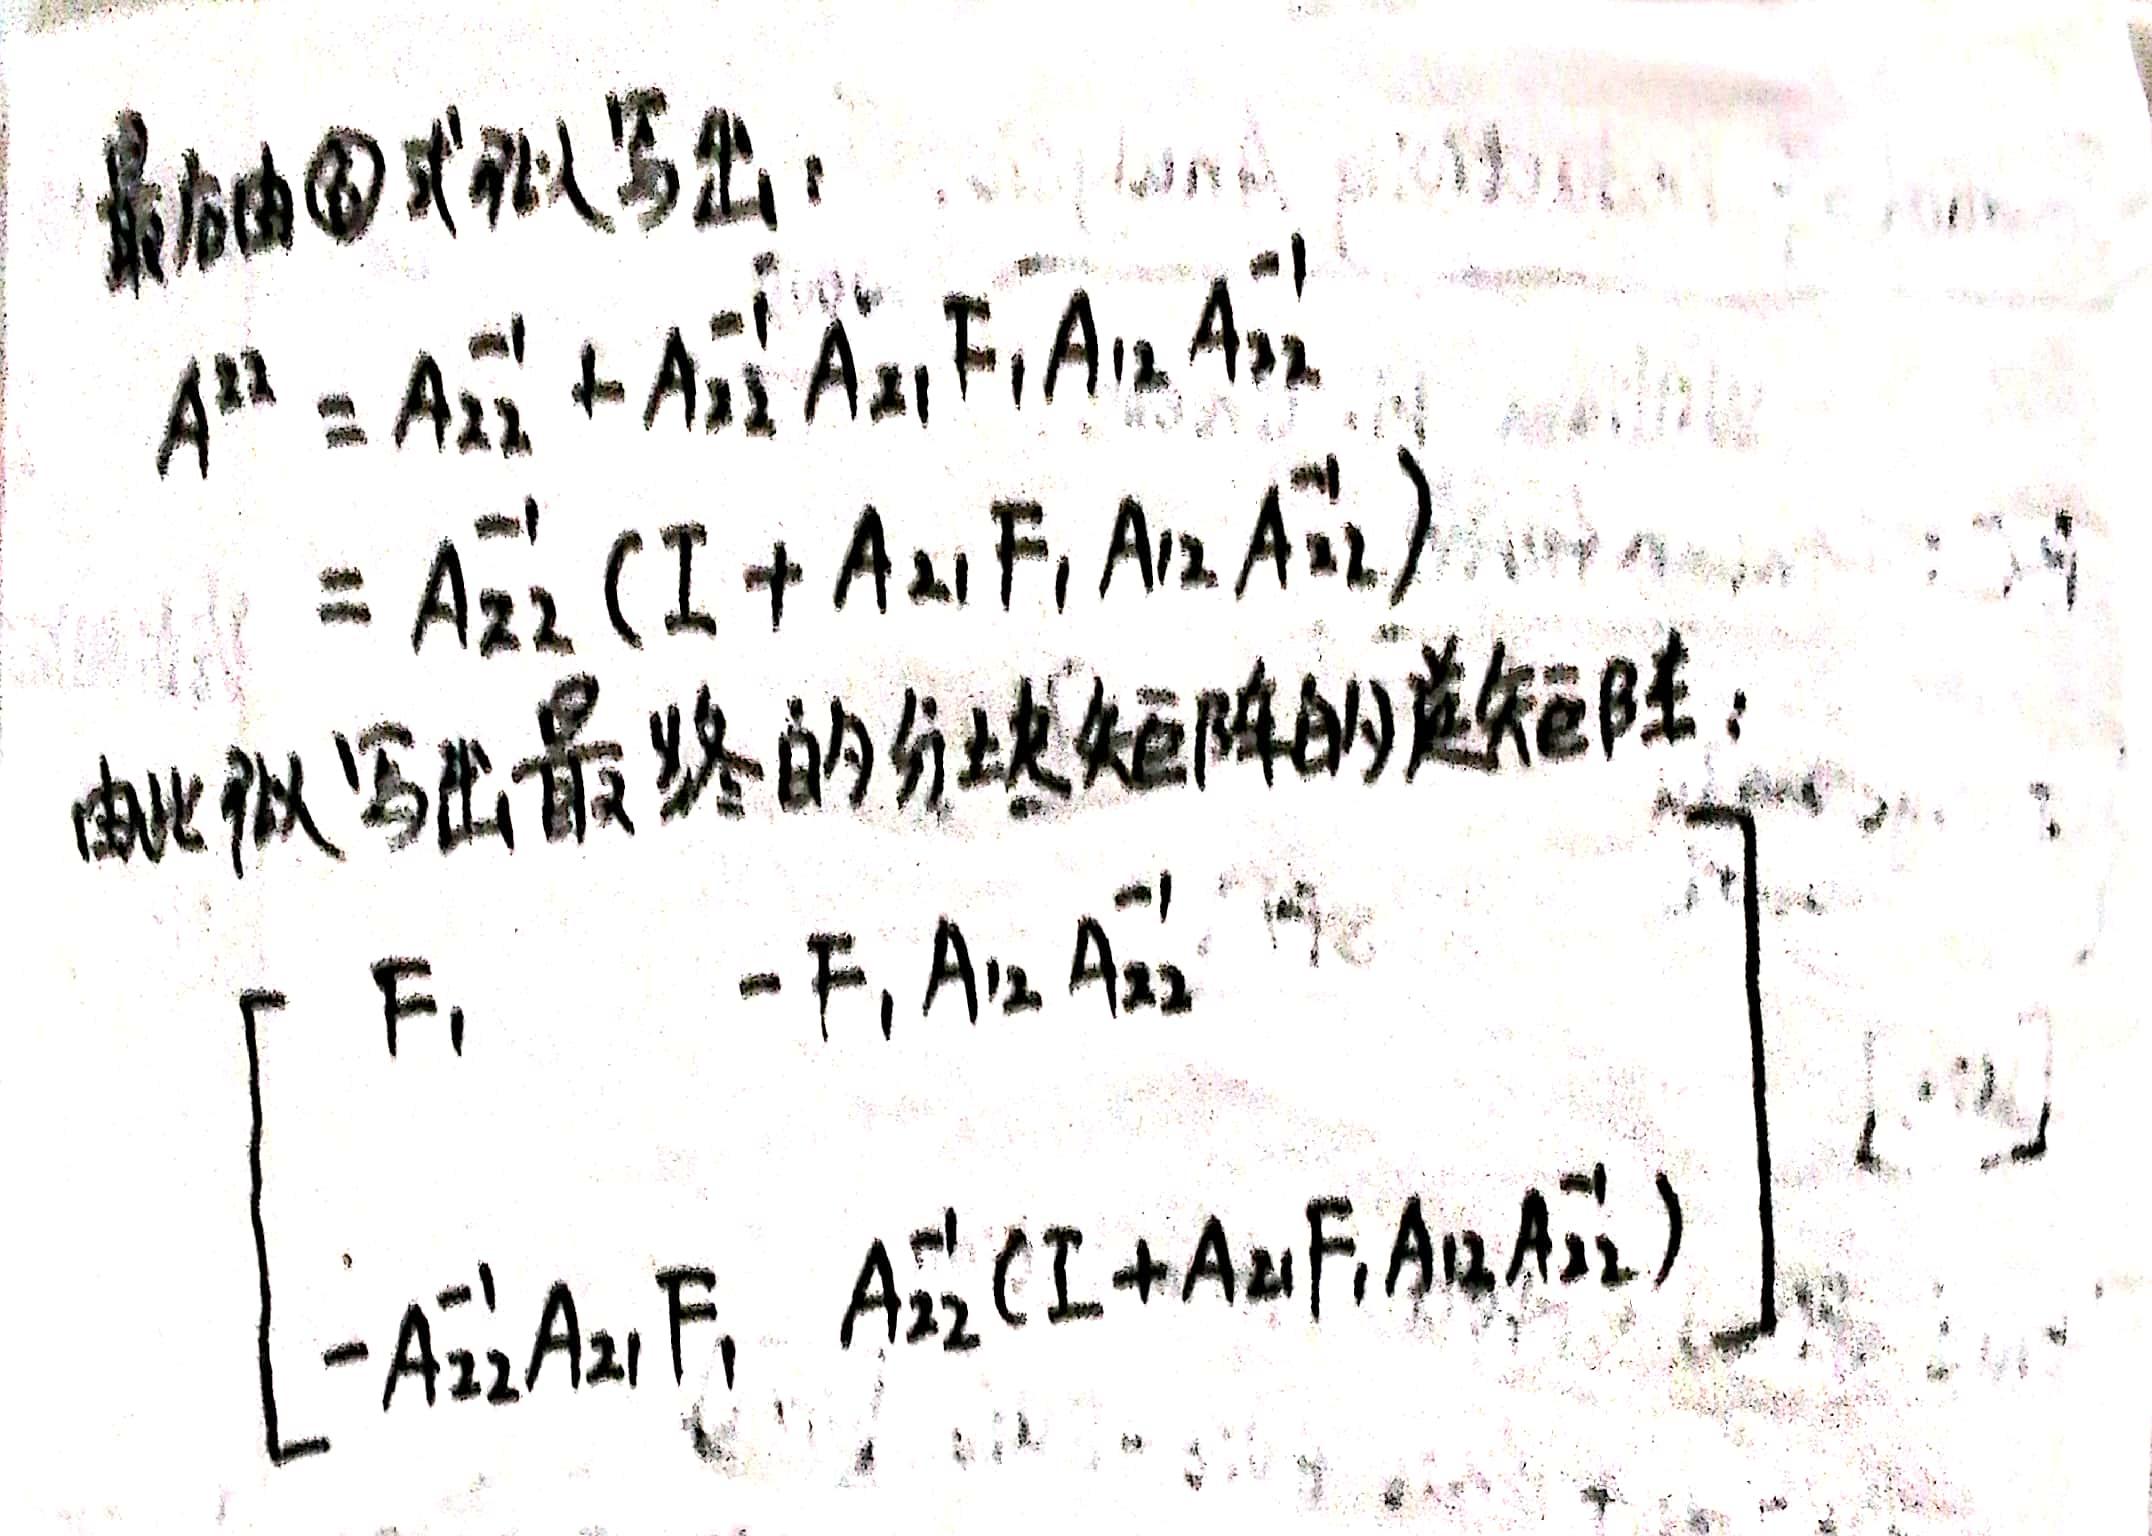 最后由⑧式可以写出:
A²² = A₂₂⁻¹ + A₂₂⁻¹ A₂₁ F₁ A₁₂ A₂₂⁻¹
= A₂₂⁻¹ (I + A₂₁ F₁ A₁₂ A₂₂⁻¹)
由此可以写出最终的分块矩阵的逆矩阵:
F₁ -F₁ A₁₂ A₂₂⁻¹
-A₂₂⁻¹ A₂₁ F₁ A₂₂⁻¹ (I + A₂₁ F₁ A₁₂ A₂₂⁻¹)